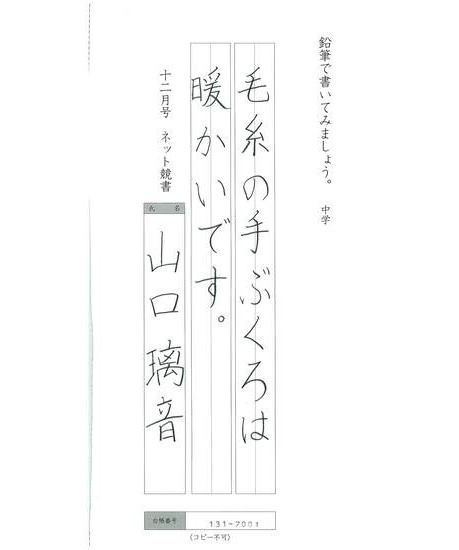 鉛筆で書いてみましょう。 中学
毛糸の手ぶくろは
暖かいです。
十二月号 ネット競書
氏 名
山口璃音
台帳番号 131-7001
(コピー不可)